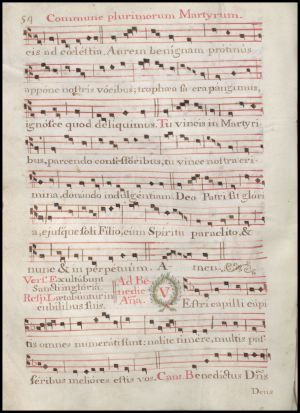 59 Commune plurimorum Martyrum.
cis ad cœlestia. Aurem benignam protinus
appone nostris vocibus; trophæa sacra pangimus,
ignosce quod deliquimus. Tu vincis in Martyri
bus, parcendo confessoribus, tu vince nostra cri
mina, donando indulgentiam. Deo Patri sit glori
a, ejusque soli Filio, cum Spiritu paraclito, &
nunc & in perpetuum. A men.
Vers. Exultabunt
Sancti in gloria.
Resp. Lætabuntur in
cubilibus suis.
Ad Be
nedic
Aña.
Vestri capilli capi
tis omnes numerati sunt: nolite timere, multis pas
seribus meliores estis vos. Cant. Benedictus Dñs
Deus